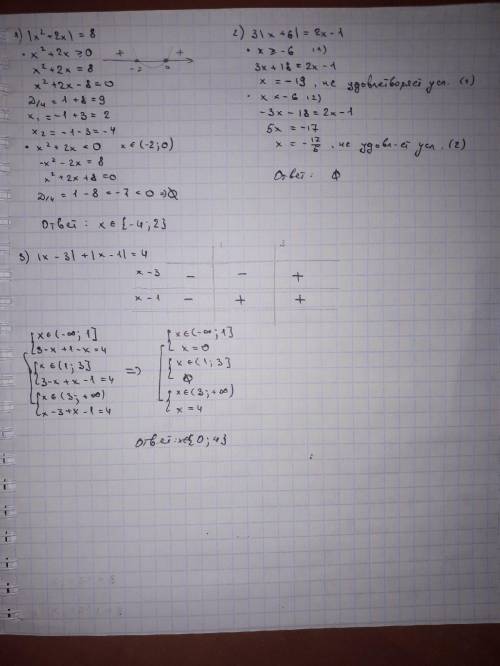 1) |x² + 2x| = 8
• x² + 2x ≥ 0
+ +
-2 0
x² + 2x = 8
x² + 2x - 8 = 0
D/4 = 1 + 8 = 9
x₁ = -1 + 3 = 2
x₂ = -1 - 3 = -4
• x² + 2x < 0 x ∈ (-2; 0)
-x² - 2x = 8
x² + 2x + 8 = 0
D/4 = 1 - 8 = -7 < 0 ⇒ ∅
Ответ: x ∈ {-4; 2}
2) 3|x + 6| = 2x - 1
• x ≥ -6 (1)
3x + 18 = 2x - 1
x = -19, не удовлетворяет усл. (1)
• x < -6 (2)
-3x - 18 = 2x - 1
5x = -17
x = -17/5, не удовл-ет усл. (2)
Ответ: ∅
3) |x - 3| + |x - 1| = 4
1 3
x - 3 - - +
x - 1 - + +
{ x ∈ (-∞; 1]
3 - x + 1 - x = 4
{ x ∈ (1; 3]
3 - x + x - 1 = 4
{ x ∈ (3; +∞)
x - 3 + x - 1 = 4
⇒
{ x ∈ (-∞; 1]
x = 0
{ x ∈ (1; 3]
∅
{ x ∈ (3; +∞)
x = 4
Ответ: x ∈ {0; 4}